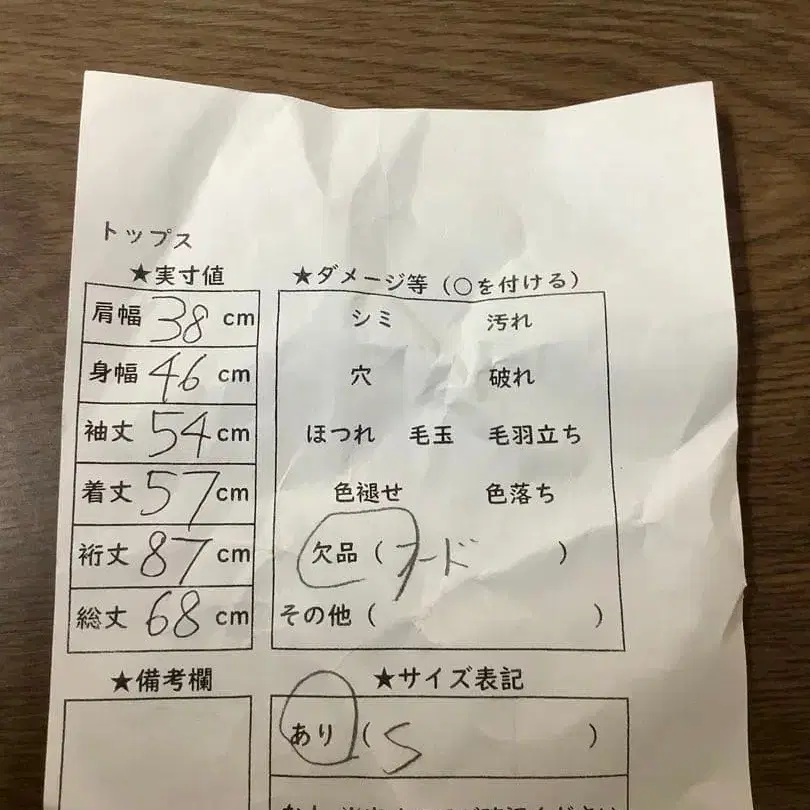 トップス
★実寸値
肩幅 38 cm
身幅 46 cm
袖丈 54 cm
着丈 57 cm
裄丈 87 cm
総丈 68 cm
★ダメージ等（○を付ける）
シミ 汚れ
穴 破れ
ほつれ 毛玉 毛羽立ち
色褪せ 色落ち
欠品（フード）
その他（ ）
★備考欄
★サイズ表記
あり（S）